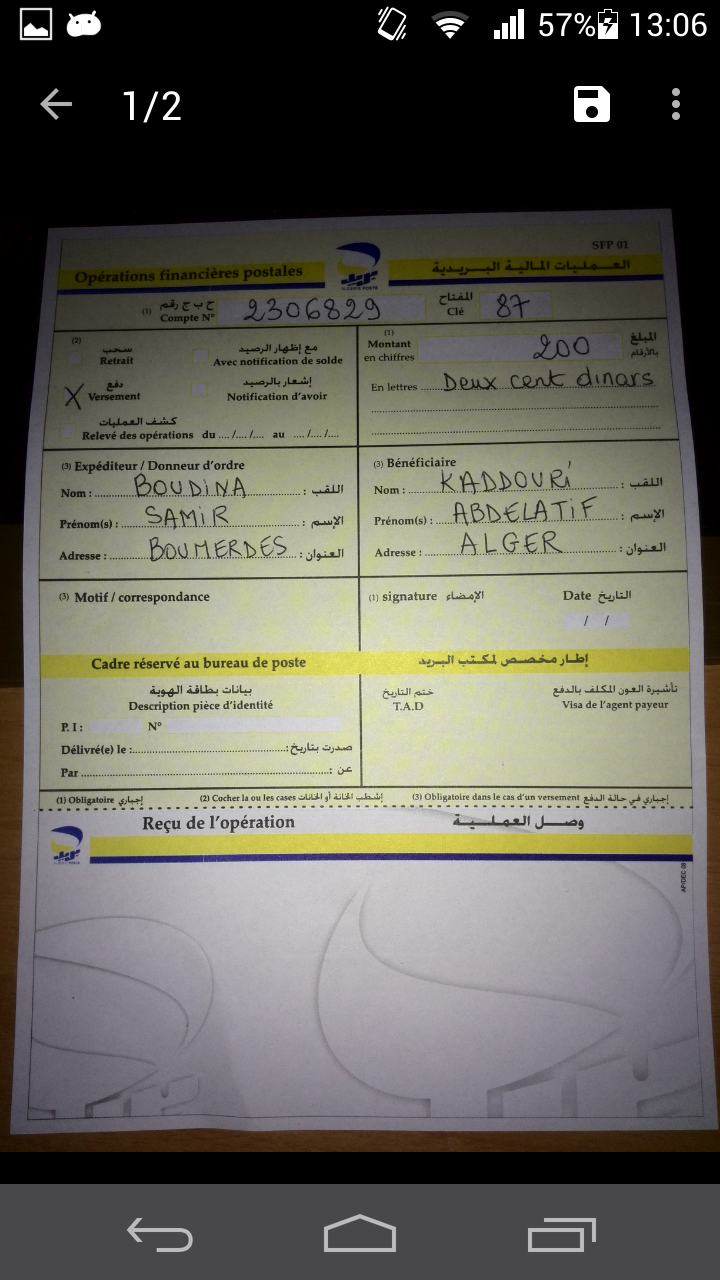 57% 13:06
1/2
SFP 01
Opérations financières postales العـمليات المالية البـريدية
ALGERIE POSTE
(1) ح ب ج رقم Compte N° 2306829 المفتاح Clé 87
(2) سحب Retrait
مع إظهار الرصيد Avec notification de solde
دفع Versement X
إشعار بالرصيد Notification d'avoir
كشف العمليات
Relevé des opérations du .../.../... au .../.../...
(1) Montant en chiffres 200 المبلغ بالأرقام
En lettres Deux cent dinars
(3) Expéditeur / Donneur d'ordre
Nom : BOUDINA اللقب :
Prénom(s) : SAMIR الإسم :
Adresse : BOUMERDES العنوان :
(3) Bénéficiaire
Nom : KADDOURI اللقب :
Prénom(s) : ABDELATIF الإسم :
Adresse : ALGER العنوان :
(3) Motif / correspondance
(1) signature الإمضاء Date التاريخ
/ /
Cadre réservé au bureau de poste إطار مخصص لمكتب البريد
بيانات بطاقة الهوية
Description pièce d'identité
P. I : N°
Délivré(e) le : صدرت بتاريخ :
Par عن :
ختم التاريخ
T.A.D
تأشيرة العون المكلف بالدفع
Visa de l'agent payeur
(1) Obligatoire إجباري (2) Cocher la ou les cases إشطب الخانة أو الخانات (3) Obligatoire dans le cas d'un versement إجباري في حالة الدفع
Reçu de l'opération وصـل العمـلـيـة
AP/DEC 08